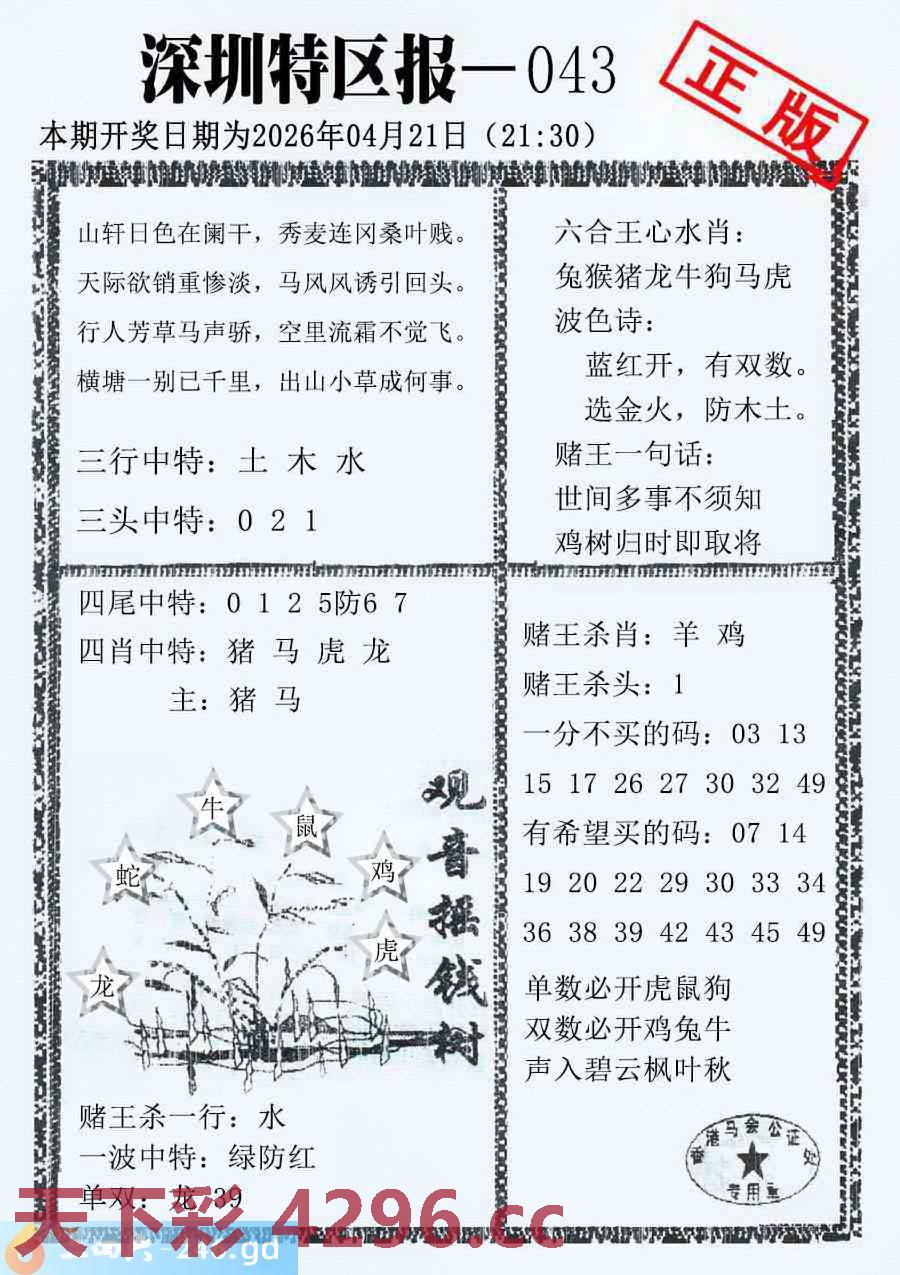 深圳特区报—043
正版
本期开奖日期为2026年04月21日（21:30）
山轩日色在阑干，秀麦连冈桑叶贱。
天际欲销重惨淡，马风风诱引回头。
行人芳草马声骄，空里流霜不觉飞。
横塘一别已千里，出山小草成何事。
三行中特：土 木 水
三头中特：0 2 1
六合王心水肖：
兔猴猪龙牛狗马虎
波色诗：
蓝红开，有双数。
选金火，防木土。
赌王一句话：
世间多事不须知
鸡树归时即取将
四尾中特：0 1 2 5防6 7
四肖中特：猪 马 虎 龙
主：猪 马
牛
鼠
蛇
鸡
虎
龙
观音摇钱树
赌王杀一行：水
一波中特：绿防红
单双：龙 39
赌王杀肖：羊 鸡
赌王杀头：1
一分不买的码：03 13
15 17 26 27 30 32 49
有希望买的码：07 14
19 20 22 29 30 33 34
36 38 39 42 43 45 49
单数必开虎鼠狗
双数必开鸡兔牛
声入碧云枫叶秋
香港马会公证处
专用章
天下彩 4296.cc